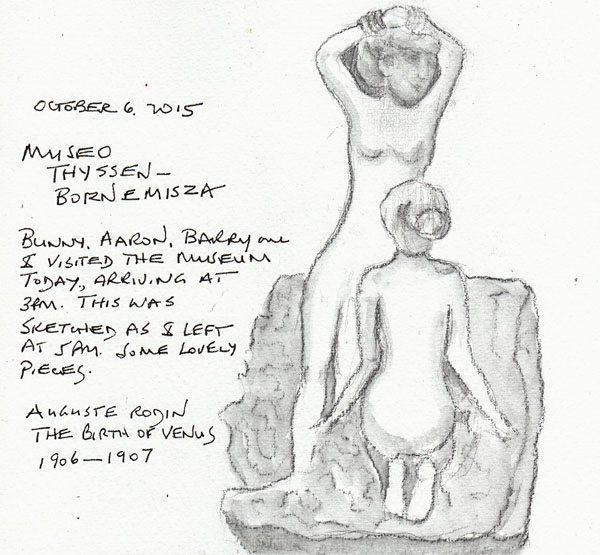 OCTOBER 6, 2015
MUSEO
THYSSEN-
BORNEMISZA
BUNNY, AARON, BARRY AND
I VISITED THE MUSEUM
TODAY, ARRIVING AT
3PM. THIS WAS
SKETCHED AS I LEFT
AT 5PM. SOME LOVELY
PIECES.
AUGUSTE RODIN
THE BIRTH OF VENUS
1906-1907